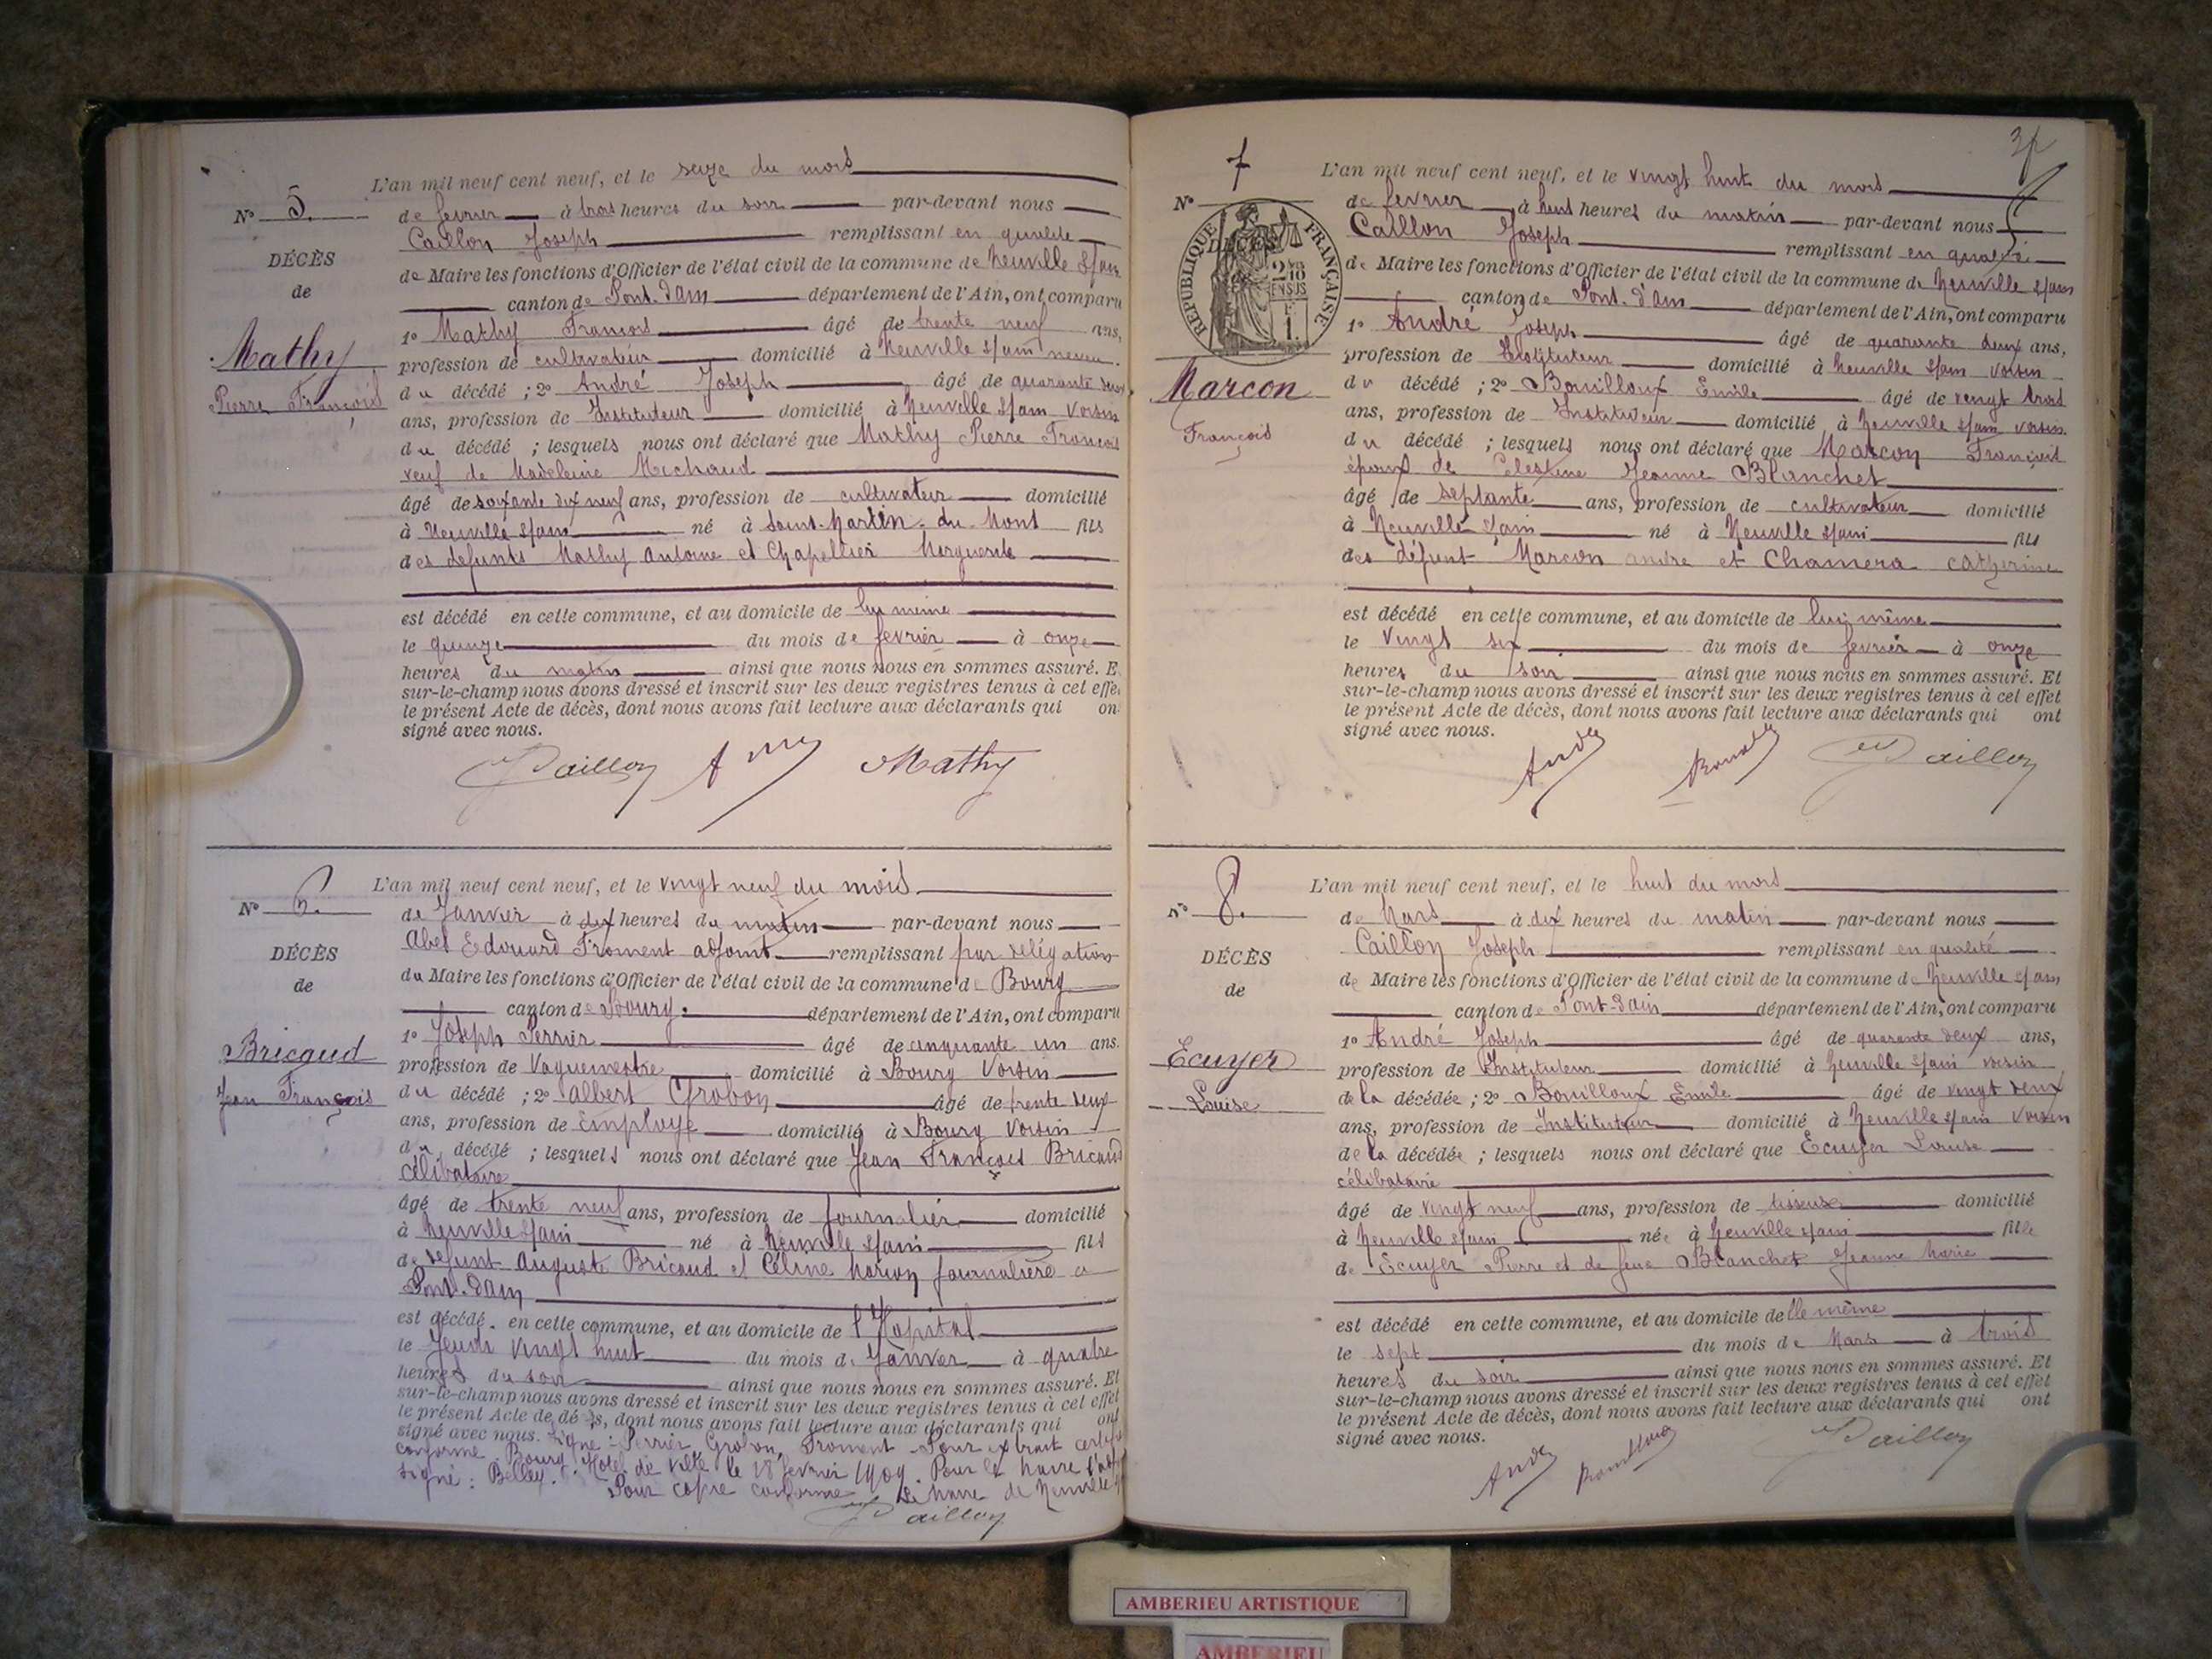 L'an mil neuf cent neuf, et le seize du mois
N° 5.
de fevrier à trois heures du soir par-devant nous
Caillon Joseph remplissant en qualité
DÉCÈS
de Maire les fonctions d'Officier de l'état civil de la commune de Neuville s/ain
de
canton de Pont-d'ain département de l'Ain, ont comparu
1° Mathy François âgé de trente neuf ans,
Mathy
profession de cultivateur domicilié à Neuville s/ain neveu
Pierre François
du décédé ; 2° André Joseph âgé de quarante deux
ans, profession de Instituteur domicilié à Neuville s/ain voisin
du décédé ; lesquels nous ont déclaré que Mathy Pierre François
veuf de Madeleine Michaud
âgé de soixante dix neuf ans, profession de cultivateur domicilié
à Neuville s/ain né à Saint-Martin-du-Mont fils
des defunts Mathy Antoine et Chapellier Marguerite
est décédé en cette commune, et au domicile de lui même
le quinze du mois de fevrier à onze
heures du matin ainsi que nous nous en sommes assuré. E
sur-le-champ nous avons dressé et inscrit sur les deux registres tenus à cet effe
le présent Acte de décès, dont nous avons fait lecture aux déclarants qui on
signé avec nous.
Caillon Mathy
L'an mil neuf cent neuf, et le vingt neuf du mois
N° 6.
de Janvier à dix heures du matin par-devant nous
Abel Edouard Froment adjoint remplissant par délégation
DÉCÈS
du Maire les fonctions d'Officier de l'état civil de la commune de Bourg
de
canton de Bourg. département de l'Ain, ont comparu
1° Joseph Perrier âgé de cinquante un ans.
Bricaud
profession de Vaguemestre domicilié à Bourg Voisin
Jean François
du décédé ; 2° Albert Grobon âgé de trente deux
ans, profession de Employé domicilié à Bourg Voisin
du décédé ; lesquels nous ont déclaré que Jean François Bricaud
célibataire
âgé de trente neuf ans, profession de journalier domicilié
à Neuville s/ain né à Neuville s/ain fils
de defunt Auguste Bricaud et Céline Marion journalière a
Pont-d'ain
est décédé. en cette commune, et au domicile de l'Hopital
le Jeudi vingt huit du mois de Janvier à quatre
heures du soir ainsi que nous nous en sommes assuré. Et
sur-le-champ nous avons dressé et inscrit sur les deux registres tenus à cet effet
le présent Acte de décès, dont nous avons fait lecture aux déclarants qui ont
signé avec nous. Signé : Perrier, Grobon, Froment - Pour extrait certifié
conforme Bourg Hotel de Ville le 18 fevrier 1909. Pour le Maire l'adj
signé : Belley. Pour copie conforme Le Maire de Neuville
Caillon
7
3
L'an mil neuf cent neuf, et le vingt huit du mois
N°
de fevrier à huit heures du matin par-devant nous
Caillon Joseph remplissant en qualité
DÉCÈS
RÉPUBLIQUE FRANÇAISE
de Maire les fonctions d'Officier de l'état civil de la commune de Neuville s/ain
canton de Pont-d'ain département de l'Ain, ont comparu
1° André Joseph âgé de quarante deux ans,
profession de Instituteur domicilié à Neuville s/ain voisin
Marcon
du décédé ; 2° Bouilloux Emile âgé de vingt trois
François
ans, profession de Instituteur domicilié à Neuville s/ain voisin
du décédé ; lesquels nous ont déclaré que Marcon François
époux de Celestine Jeanne Blanchet
âgé de septante ans, profession de cultivateur domicilié
à Neuville s/ain né à Neuville s/ain fils
des défunt Marcon andre et Chamera catherine
est décédé en cette commune, et au domicile de lui même
le vingt six du mois de fevrier à onze
heures du soir ainsi que nous nous en sommes assuré. Et
sur-le-champ nous avons dressé et inscrit sur les deux registres tenus à cet effet
le présent Acte de décès, dont nous avons fait lecture aux déclarants qui ont
signé avec nous.
André Caillon
L'an mil neuf cent neuf, et le huit du mois
N° 8.
de Mars à dix heures du matin par-devant nous
Caillon Joseph remplissant en qualité
DÉCÈS
de Maire les fonctions d'Officier de l'état civil de la commune de Neuville s/ain
de
canton de Pont-d'ain département de l'Ain, ont comparu
1° André Joseph âgé de quarante deux ans,
Ecuyer
profession de Instituteur domicilié à Neuville s/ain voisin
Louise
de la décédée ; 2° Bouilloux Emile âgé de vingt deux
ans, profession de Instituteur domicilié à Neuville s/ain voisin
de la décédée ; lesquels nous ont déclaré que Ecuyer Louise
célibataire
âgé de vingt neuf ans, profession de tisseuse domicilié
à Neuville s/ain née à Neuville s/ain fille
de Ecuyer Pierre et de feue Blanchet Jeanne Marie
est décédé en cette commune, et au domicile d'elle même
le sept du mois de Mars à trois
heures du soir ainsi que nous nous en sommes assuré. Et
sur-le-champ nous avons dressé et inscrit sur les deux registres tenus à cet effet
le présent Acte de décès, dont nous avons fait lecture aux déclarants qui ont
signé avec nous.
André Bouilloux Caillon
AMBERIEU ARTISTIQUE
AMBERIEU